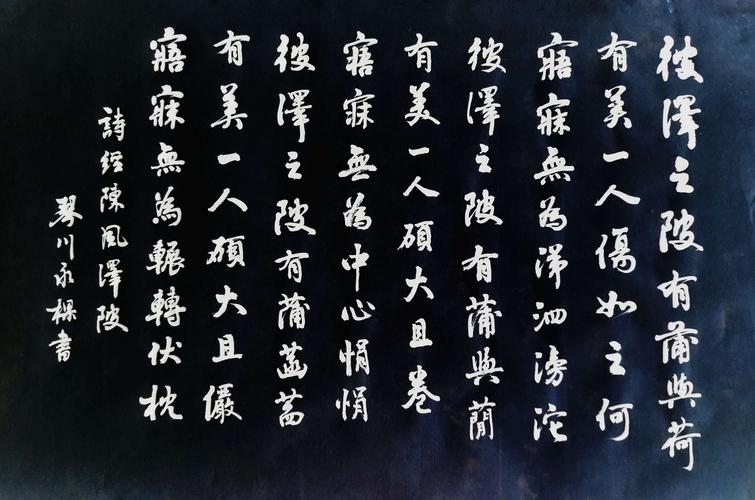 彼澤之陂有蒲與荷
有美一人傷如之何
寤寐無為涕泗滂沱
彼澤之陂有蒲與蕑
有美一人碩大且卷
寤寐無為中心悁悁
彼澤之陂有蒲菡萏
有美一人碩大且儼
寤寐無為輾轉伏枕
詩經陳風澤陂
琴川永樑書